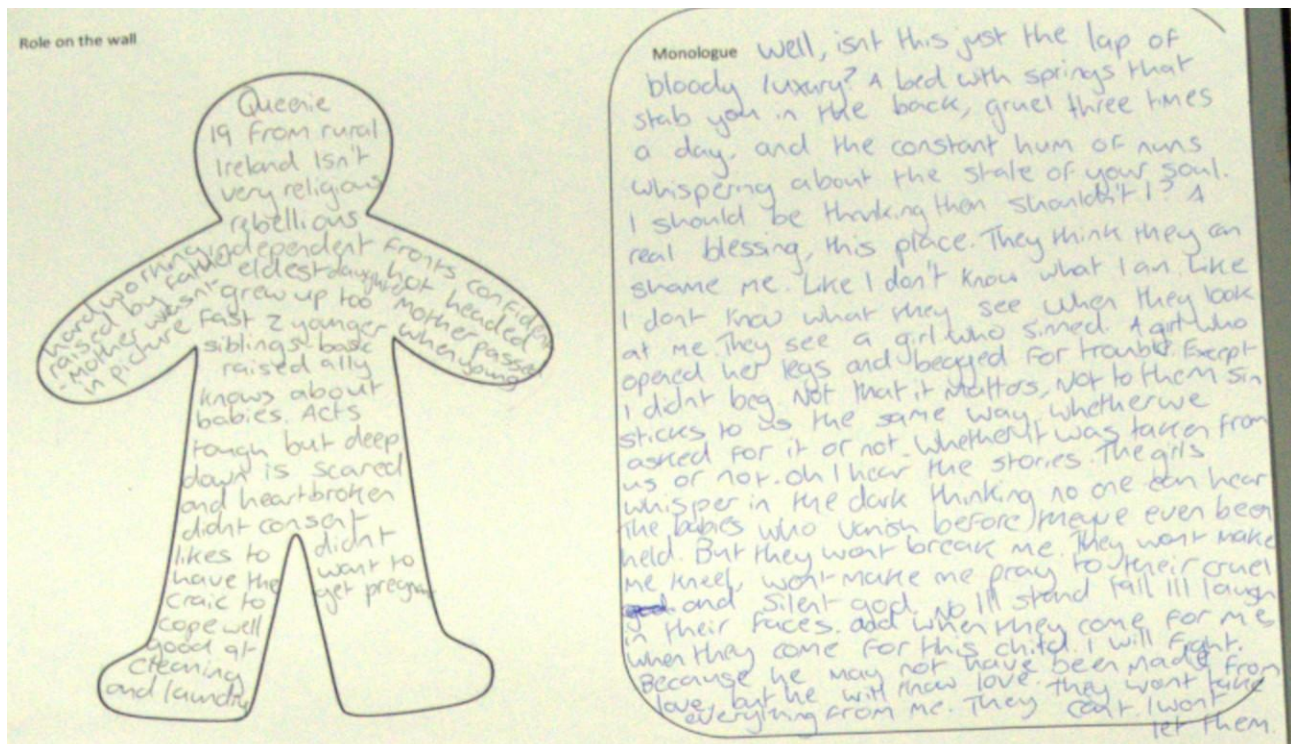 Role on the wall
Queenie
19 from rural
Ireland Isn't
very religious
rebellious
independent fronts confident
hardworking
raised by father
eldest daughter
hot headed
· Mother wasn't
in picture
grew up too
Mother passed
when young
fast 2 younger
siblings basic
raised ally
knows about
babies. Acts
tough but deep
down is scared
and heartbroken
didnt consent
likes to
have the
craic to
cope well
good at
cleaning
and laundry
didnt
want to
get pregnant
Monologue
Well, isnt this just the lap of
bloody luxury? A bed with springs that
stab you in the back, gruel three times
a day, and the constant hum of nuns
whispering about the state of your soul.
I should be thanking then shouldn't I? A
real blessing, this place. They think they can
shame me. Like I don't know what I am. Like
I dont know what they see when they look
at me. They see a girl who sinned. A girl who
opened her legs and begged for trouble. Except
I didnt beg. Not that it matters, Not to them sin
sticks to us the same way, whether we
asked for it or not. Whether it was taken from
us or not. oh I hear the stories. The girls
whisper in the dark thinking no one can hear
The babies who vanish before theyve even been
held. But they wont break me. They wont make
me kneel, wont make me pray to their cruel
and silent god. No Ill stand tall Ill laugh
in their faces. and when they come for me
when they come for this child. I will fight.
Because he may not have been made from
love, but he will know love. They wont take
everything from me. They cant. I wont
let them.